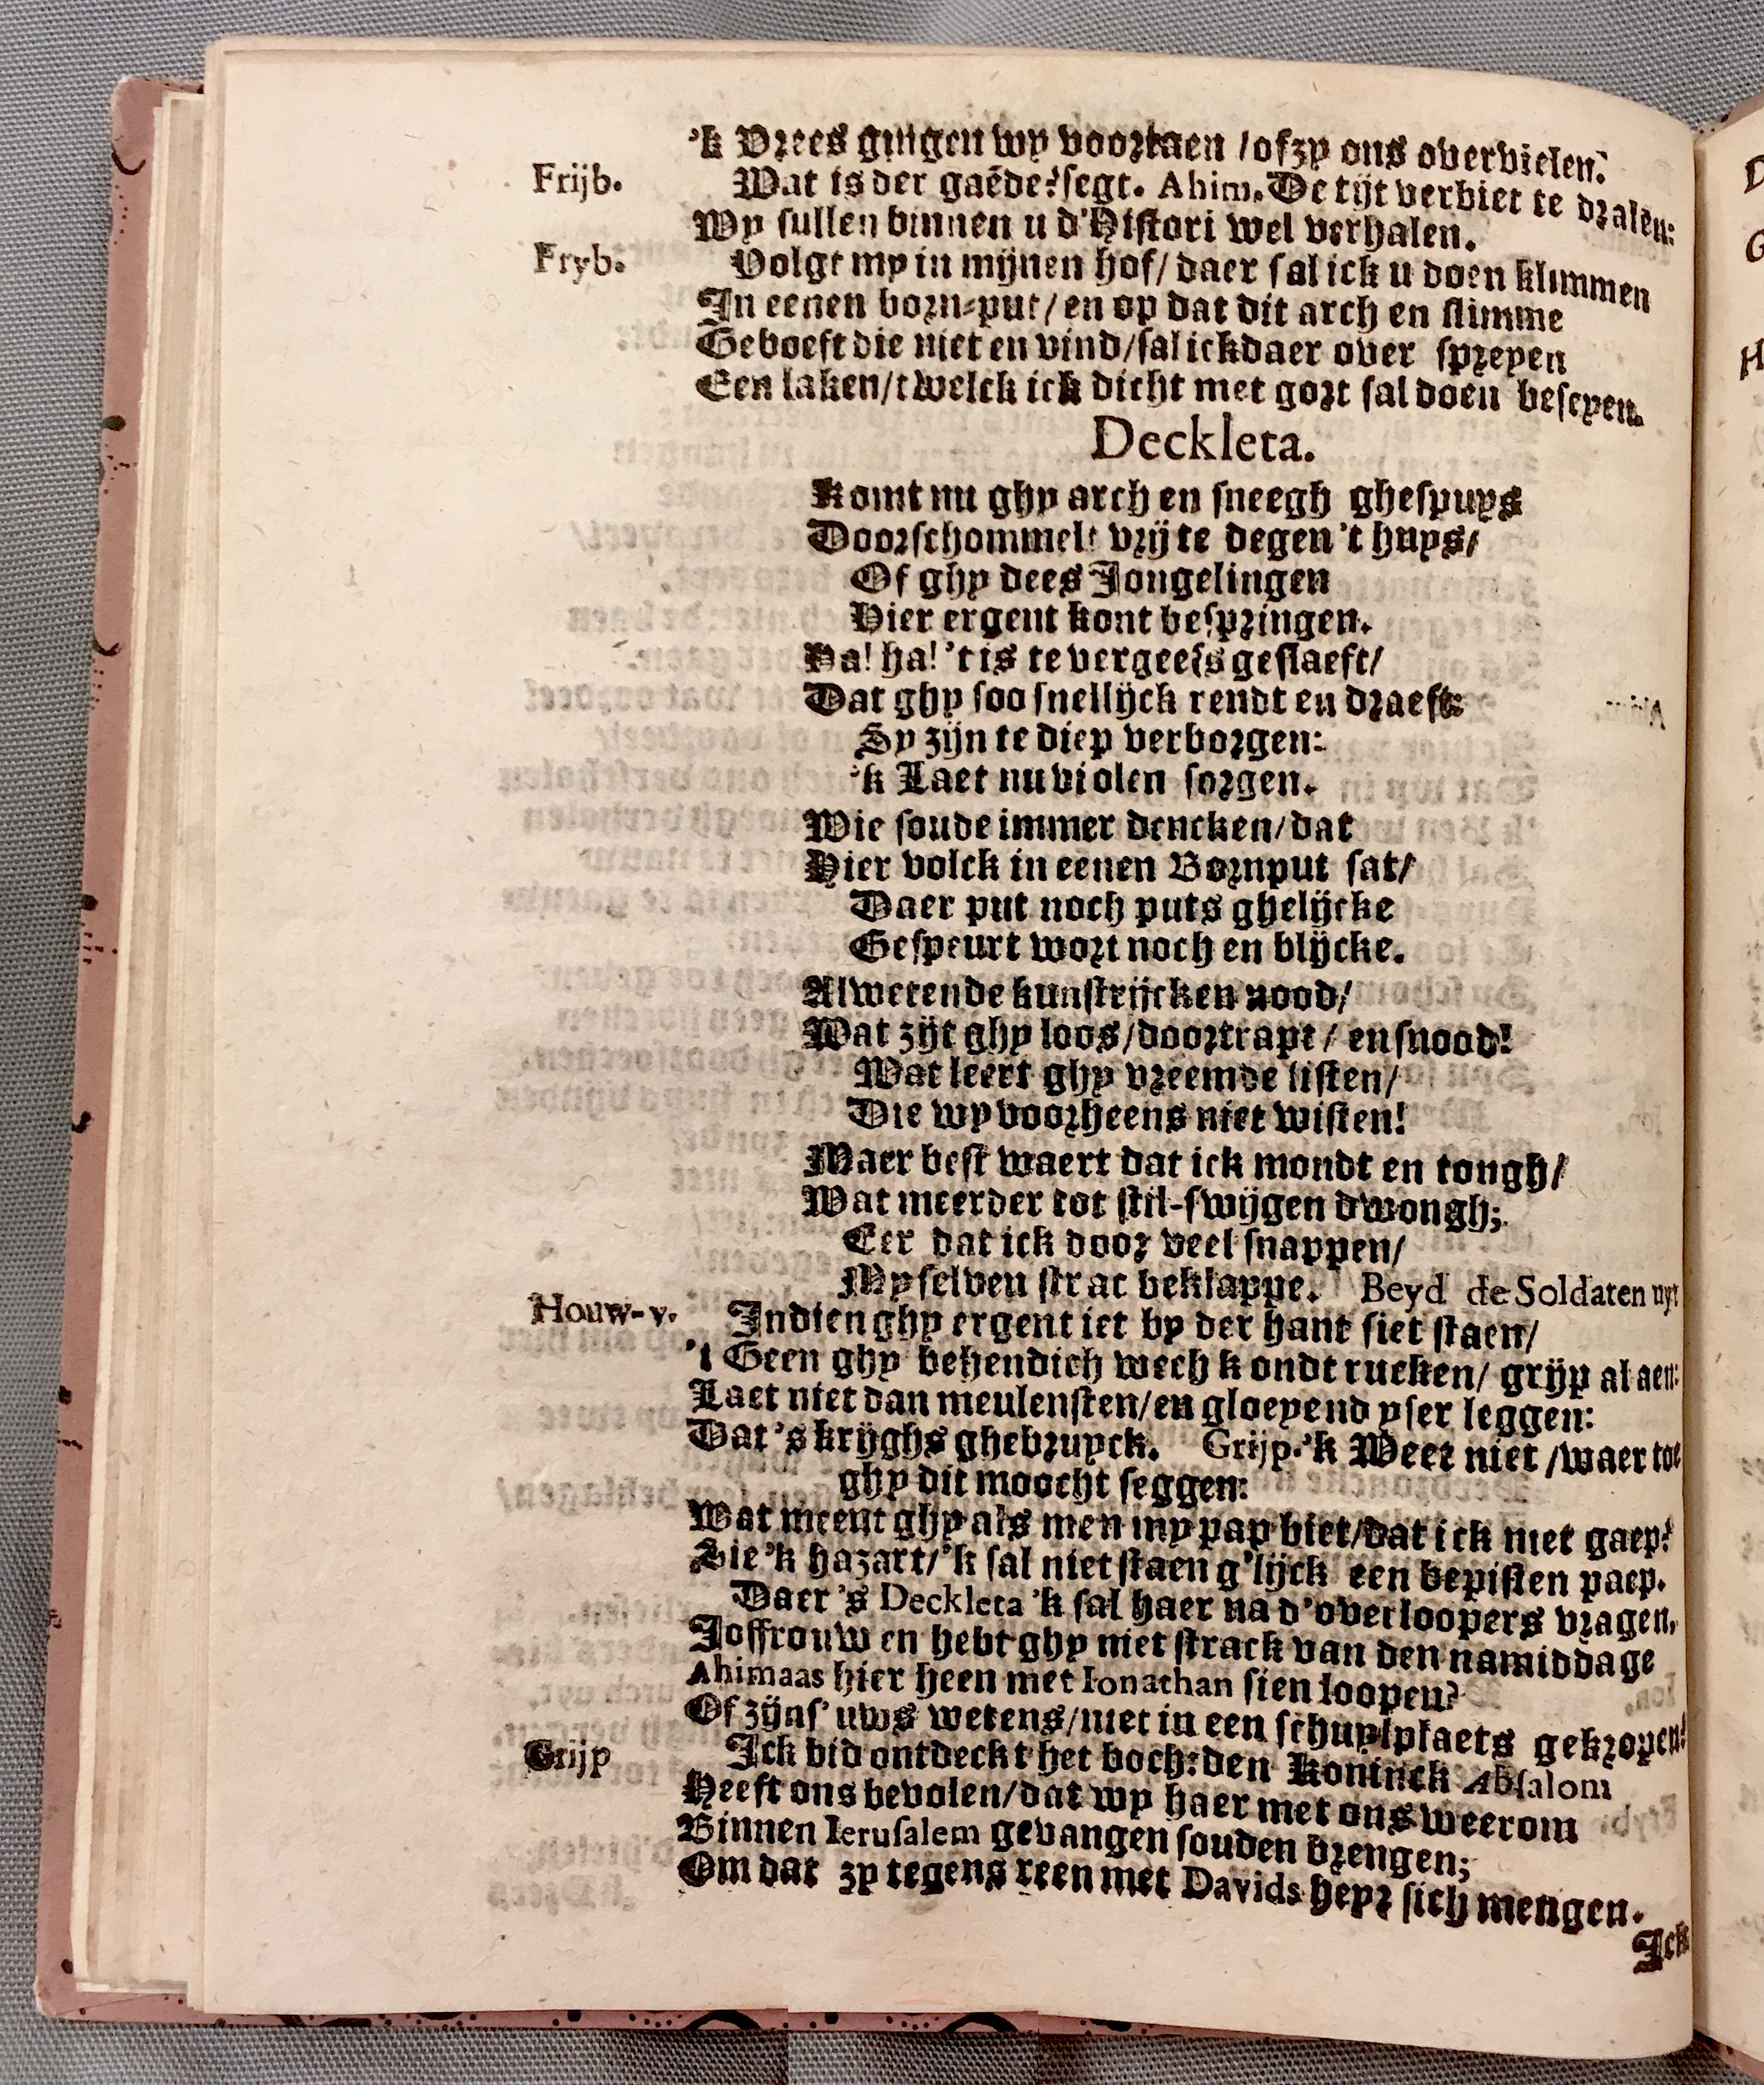 'k Vrees gingen wy voortaen / of zy ons overvielen.
Frijb. Wat is der gaẽde? segt. Ahim. De tijt verbiet te dralen:
Wy sullen binnen u d'Histori wel verhalen.
Fryb. Volgt my in mijnen hof / daer sal ick u doen klimmen
In eenen born-put / en op dat dit arch en slimme
Geboeft die niet en vind / sal ick daer over spreyen
Een laken / twelck ick dicht met gort sal doen beseyen.
Deckleta.
Komt nu ghy arch en sneegh ghespuys
Doorschommelt vrij te degen 't huys /
Of ghy dees Jongelingen
Hier ergent kont bespringen.
Ha! ha! 't is te vergeefs geslaeft /
Dat ghy soo snellijck rendt en draeft:
Sy zijn te diep verborgen:
'k Laet nu violen sorgen.
Wie soude immer dencken / dat
Hier volck in eenen Bornput sat /
Daer put noch puts ghelijcke
Gespeurt wort noch en blijcke.
Alwetende kunstrijcken nood /
Wat zijt ghy loos / doortrapt / en snood!
Wat leert ghy vreemde listen /
Die wy voorheens niet wisten!
Maer best waert dat ick mondt en tongh /
Wat meerder tot stil-swijgen dwongh;
Eer dat ick door veel snappen /
My selven strac beklappe. Beyd de Soldaten uyt
Houw-v. Indien ghy ergent iet by der hant siet staen /
't Geen ghy behendich wech kondt rucken / grijp al aen:
Laet niet dan meulensten / en gloeyend yser leggen:
Dat 's krijghs ghebruyck. Grijp. 'k Weet niet / waer toe
ghy dit moocht seggen:
Wat meent ghy als men my pap biet / dat ick niet gaep?
Sie 'k hazart / 'k sal niet staen g'lijck een bepisten paep.
Daer 's Deckleta 'k sal haer na d'overloopers vragen.
Joffrouw en hebt ghy niet strack van den namiddage
Ahimaas hier heen met Ionathan sien loopen?
Of zijns' uws wetens / niet in een schuylplaets gekropen?
Grijp Ick bid ontdeckt het doch: den Koninck Absalom
Heeft ons bevolen / dat wy haer met ons weerom
Binnen Ierusalem gevangen souden brengen;
Om dat zy tegens reen met Davids heyr sich mengen.
Ick